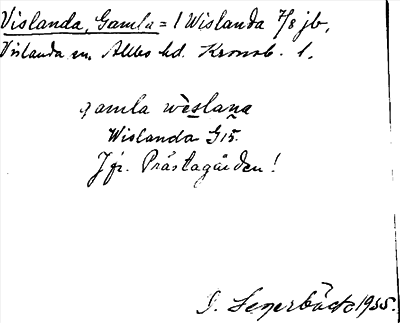 Vislanda, Gamla = 1 Wislanda 7/8 jb,
Vislanda sn. Allbo hd. Kronob. l.
gamla wèslana
Wislanda G15.
Jfr. Prästagården!
S. Segerbäck 1935.